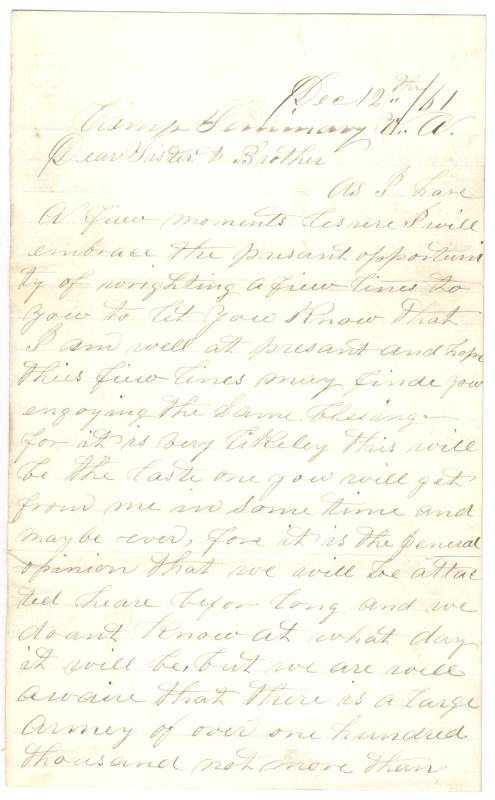 Dec 12th /61
Camp Seminary V. A.
Dear Sister & Brother
As I have
A fiew moments lesure I will
embrace the presant opportuni
ty of wrighting a fiew lines to
yow to let yow Know that
I am well at presant and hope
thies fiew lines may finde yow
engoying the Same blessing
for it is very likeley this will
be the laste one yow will get
from me in some time and
maybe ever, fore it is the general
opinion that we will be attac
ted heare befor long and we
doant Know at what day
it will be, but we are well
awaire that there is a large
Armey of over one hundred
thousand not more than